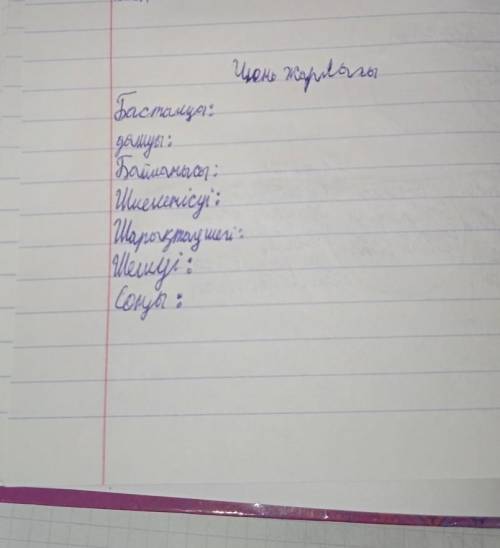 Шың жарлығы
Басталуы:
дамуы:
Байланысы:
Шиеленісуі:
Шарықтау шегі:
Шешуі:
Соңы: